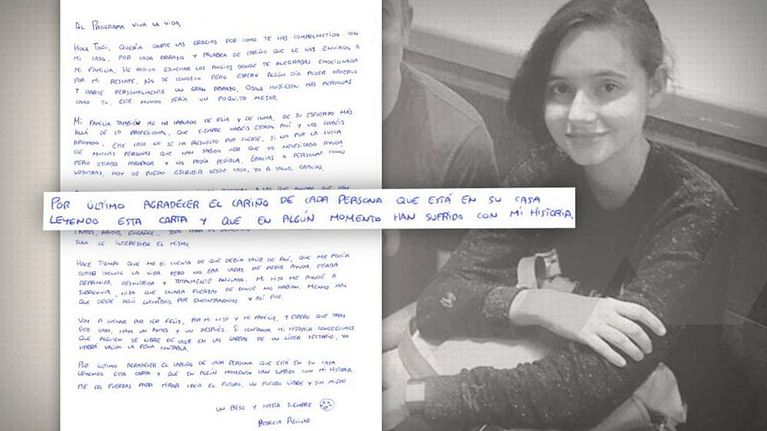 AL PROGRAMA VIVA LA VIDA,
HOLA TOÑI, QUERÍA DARTE LAS GRACIAS POR COMO TE HAS COMPROMETIDO CON
MI CASO. POR CADA ABRAZO Y PALABRA DE CARIÑO QUE LE HAS ENVIADO A
MI FAMILIA. HE PODIDO ESCUCHAR LOS AUDIOS DONDE TE ALEGRABAS EMOCIONADA
POR MI RESCATE. NO TE CONOZCO PERO ESPERO ALGÚN DÍA PODER HACERLO
Y DARTE PERSONALMENTE UN GRAN ABRAZO. OJALÁ HUBIESEN MÁS PERSONAS
COMO TU, ESTE MUNDO SERÍA UN POQUITO MEJOR.
MI FAMILIA TAMBIÉN ME HA HABLADO DE ELIA Y DE INMA, DE SU ESFUERZO MÁS
ALLÁ DE LO PROFESIONAL, QUE SIEMPRE HABÉIS ESTADO AHÍ Y LOS HABÉIS
APOYADO. ESTE CASO NO SE HA RESUELTO POR SUERTE, SI NO POR LA LUCHA
DE MUCHAS PERSONAS QUE HAN SABIDO VER QUE YO NECESITABA AYUDA
PERO ESTABA ATRAPADA Y NO PODÍA PEDIRLA. GRACIAS A PERSONAS COMO
VOSOTRAS, HOY OS PUEDO ESCRIBIR DESDE CASA, YA A SALVO. GRACIAS.
POR ÚLTIMO AGRADECER EL CARIÑO DE CADA PERSONA QUE ESTÁ EN SU CASA
LEYENDO ESTA CARTA Y QUE EN ALGÚN MOMENTO HAN SUFRIDO CON MI HISTORIA.
SOLO LE INTERESABA EL MISMO.
HACE TIEMPO QUE ME DI CUENTA DE QUE DEBÍA SALIR DE AHÍ, QUE ME PODÍA
COSTAR INCLUSO LA VIDA PERO NO ERA CAPAZ DE PEDIR AYUDA, ESTABA
DEPRIMIDA, DESNUTRIDA Y TOTALMENTE ANULADA. MI HIJA ME AYUDÓ A
SOBREVIVIR, HIZO QUE SACARA FUERZAS DE DONDE NO HABÍAN. MENOS MAL
QUE DESDE AQUÍ LUCHABAIS POR ENCONTRARNOS Y ASÍ FUE.
VOY A LUCHAR POR SER FELIZ, POR MI HIJA Y MI FAMILIA, Y ESPERO QUE TRAS
ESTE CASO, HAYA UN ANTES Y UN DESPUÉS. SI CONTANDO MI HISTORIA CONSEGUIMOS
QUE ALGUIEN SE LIBRE DE CAER EN LAS GARRAS DE UN LÍDER SECTARIO, YA
HABRÁ VALIDO LA PENA CONTARLA.
POR ÚLTIMO AGRADECER EL CARIÑO DE CADA PERSONA QUE ESTÁ EN SU CASA
LEYENDO ESTA CARTA Y QUE EN ALGÚN MOMENTO HAN SUFRIDO CON MI HISTORIA.
ME DA FUERZAS PARA MIRAR HACIA EL FUTURO, UN FUTURO LIBRE Y SIN MIEDO
UN BESO Y HASTA SIEMPRE
PATRICIA AGUILAR